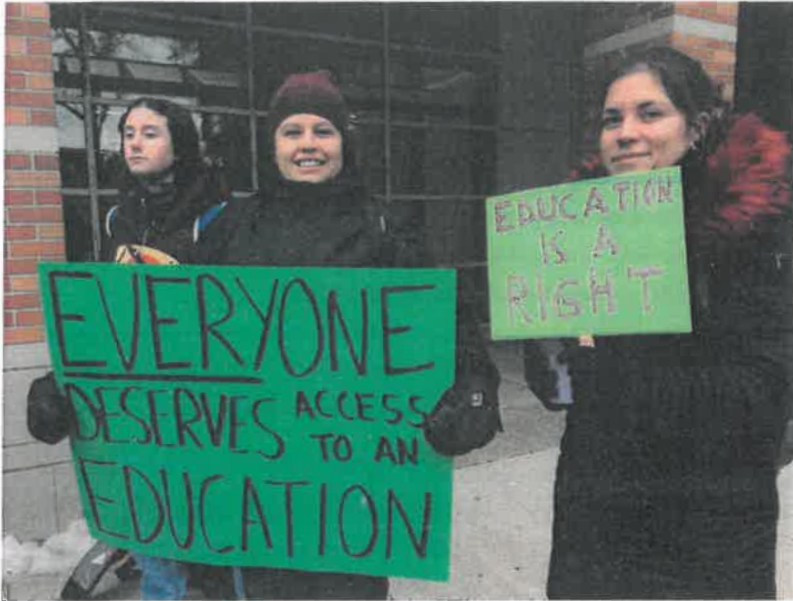 EVERYONE
DESERVES ACCESS
TO AN
EDUCATION
EDUCATION
IS A
RIGHT